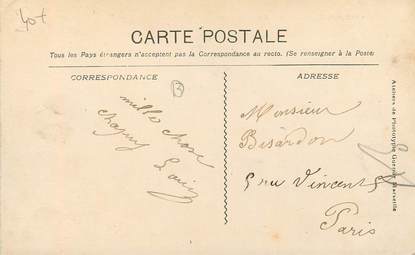 40+
CARTE POSTALE
Tous les Pays étrangers n'acceptent pas la Correspondance au recto. (Se renseigner à la Poste)
CORRESPONDANCE
ADRESSE
3
mille chose
Louis
Monsieur
Bisardon
5 ru Vincent
Paris
Ateliers de Phototypie Marseille